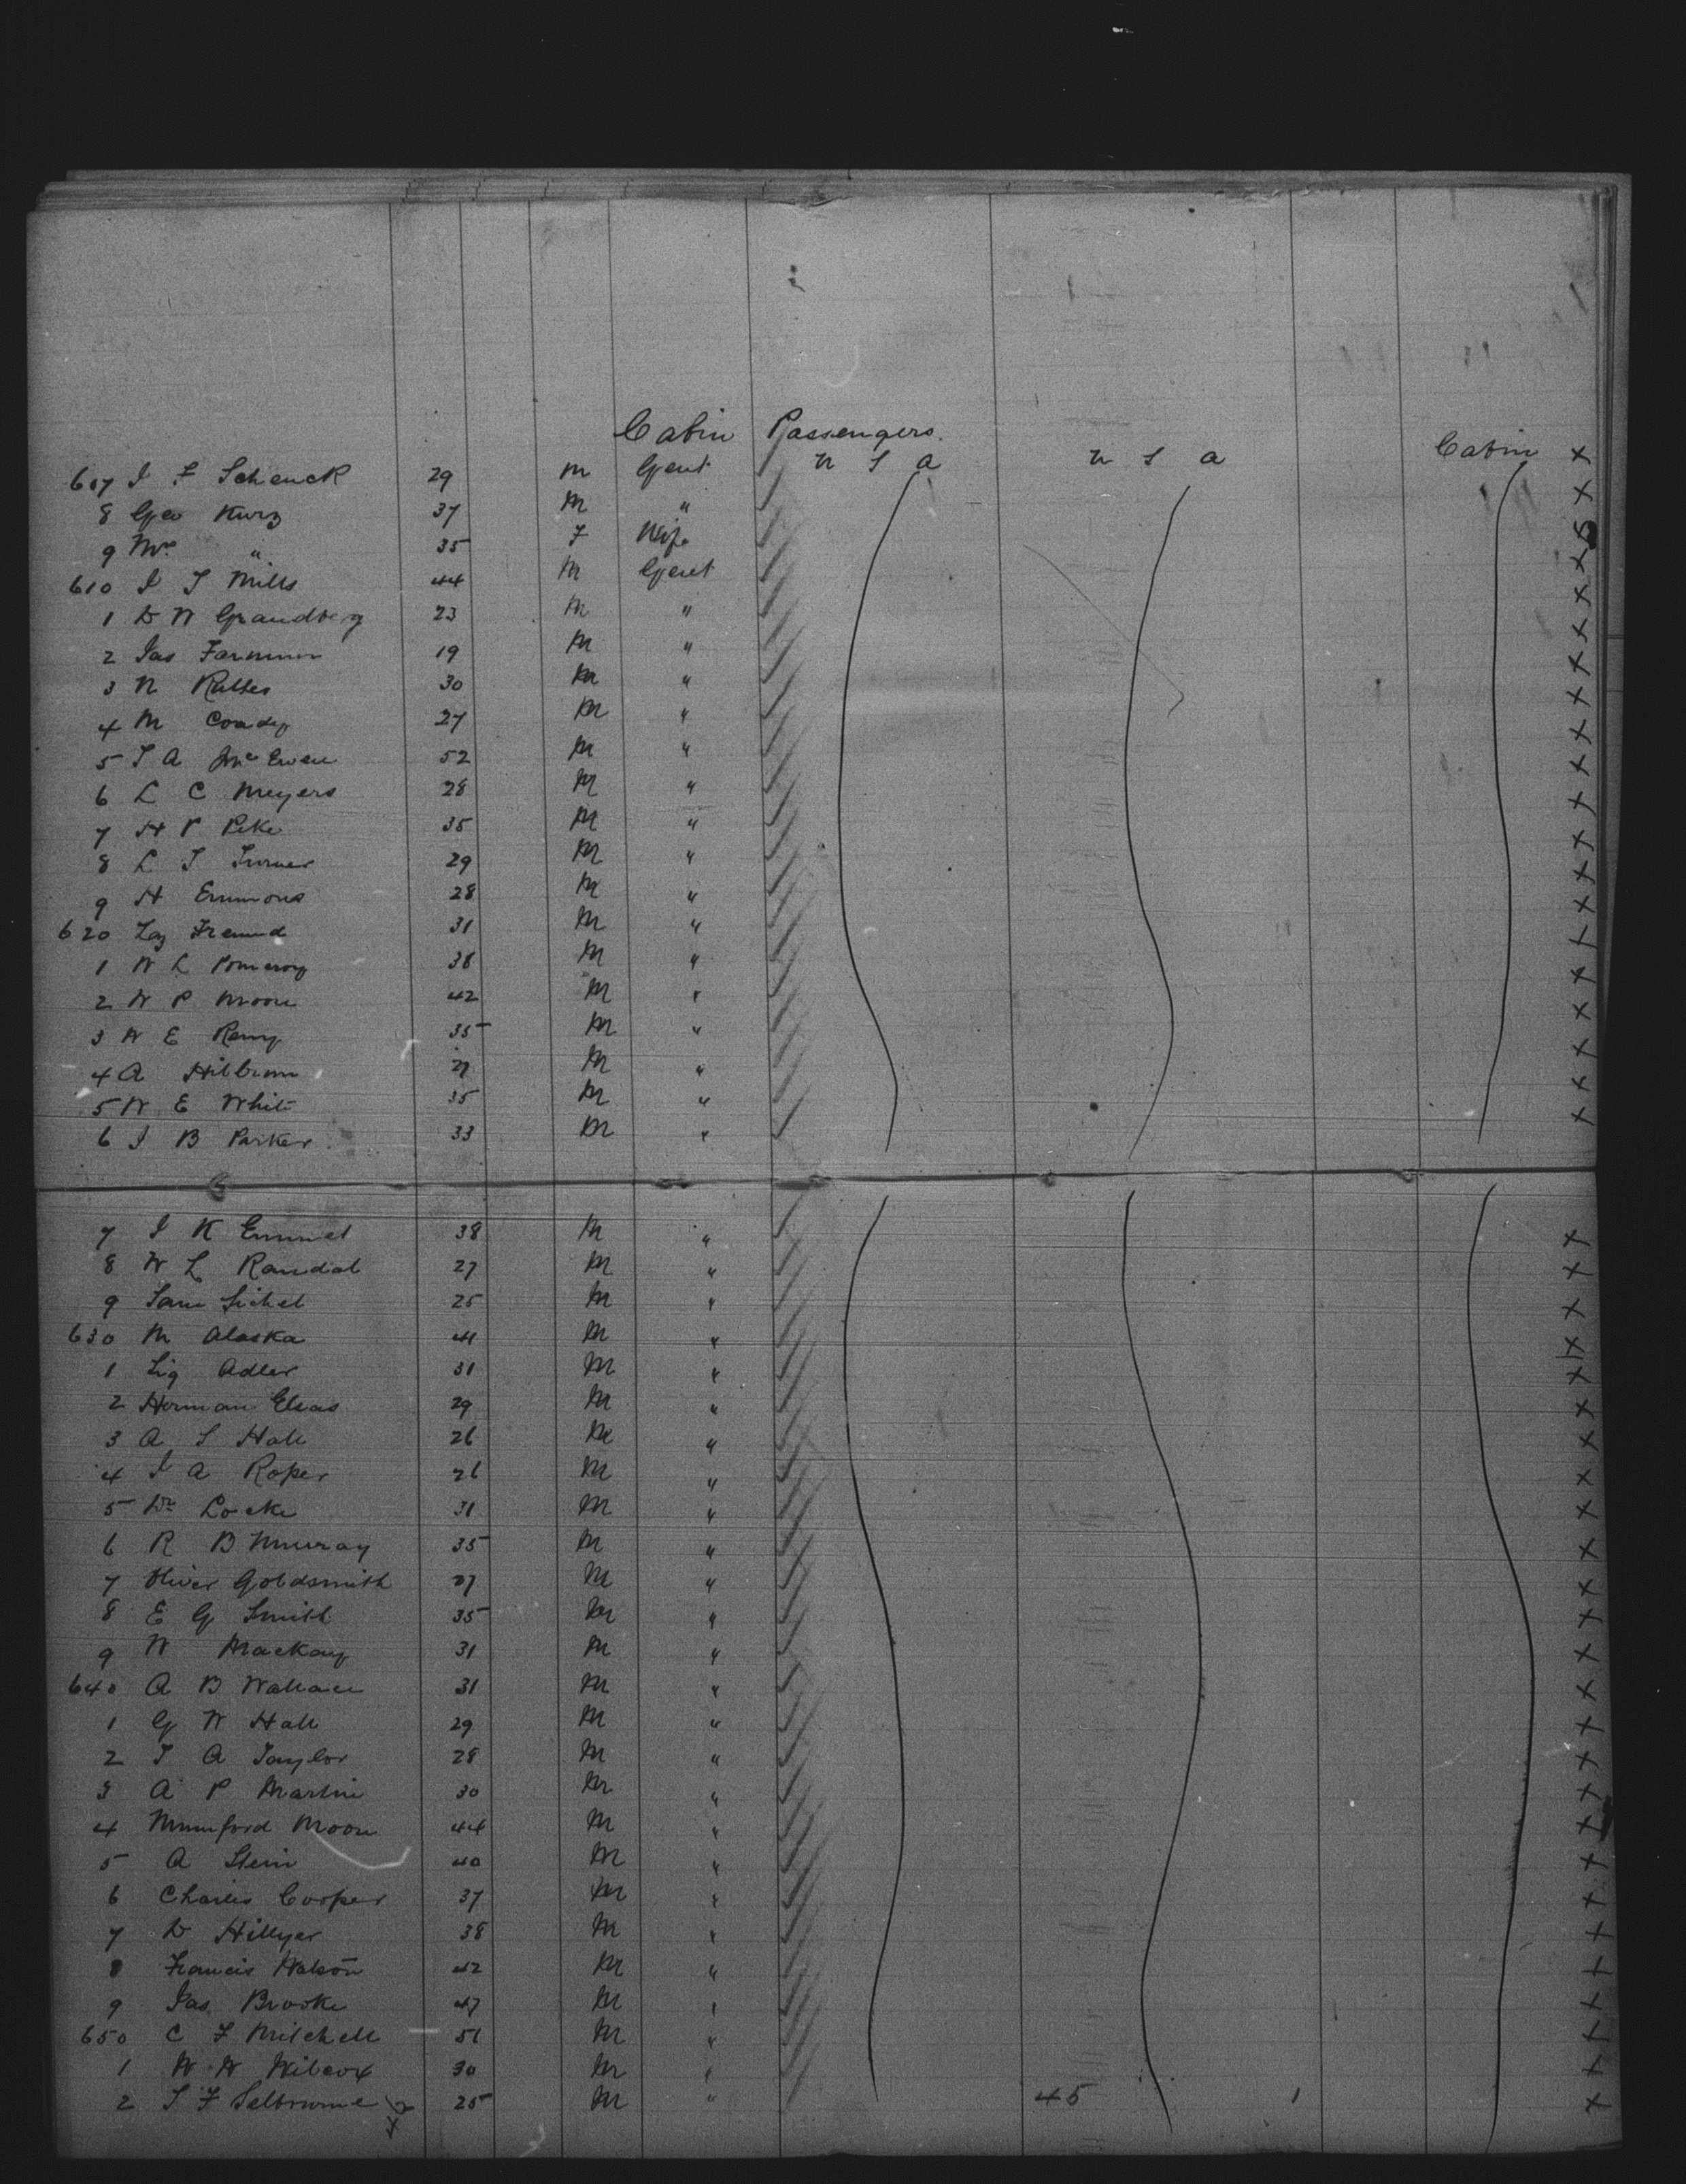 Cabin Passengers.
607 J F Schenck 29 M Gent U S A U S A Cabin X
8 Geo Kurz 37 M " X
9 Mrs " 35 F Wife X
610 J T Mills 44 M Gent X
1 D W Grandberg 23 M " X
2 Jas 19 M " X
3 N 30 M " X
4 M Coady 27 M " X
5 T A McEwen 52 M " X
6 L C Meyers 28 M " X
7 H P Pike 35 M " X
8 L T Turner 29 M " X
9 H Emmons 28 M " X
620 Freund 31 M " X
1 W L Pomeroy 38 M " X
2 W P Moore 42 M " X
3 W E Remy 35 M " X
4 A 29 M " X
5 W E White 35 M " X
6 J B Parker 33 M " X
7 J K Emmet 38 M " X
8 W L Randal 27 M " X
9 Sam Sichel 25 M " X
630 M Alaska 41 M " X
1 Sig Adler 31 M " X
2 Herman Elias 29 M " X
3 A S Hall 26 M " X
4 J A Roper 26 M " X
5 Dr Locke 31 M " X
6 R B Murray 35 M " X
7 Oliver Goldsmith 27 M " X
8 E G Smith 35 M " X
9 W Mackay 31 M " X
640 A B Wallace 31 M " X
1 G W Hall 29 M " X
2 T A Taylor 28 M " X
3 A P Martin 30 M " X
4 Mumford Moore 44 M " X
5 A Stein 40 M " X
6 Charles Cooper 37 M " X
7 D Hillyer 38 M " X
8 Francis Watson 42 M " X
9 Jas Brooke 47 M " X
650 C F Mitchell 51 M " X
1 W W Wilcox 30 M " X
2 S F Selbourne 25 M " 45 1 X